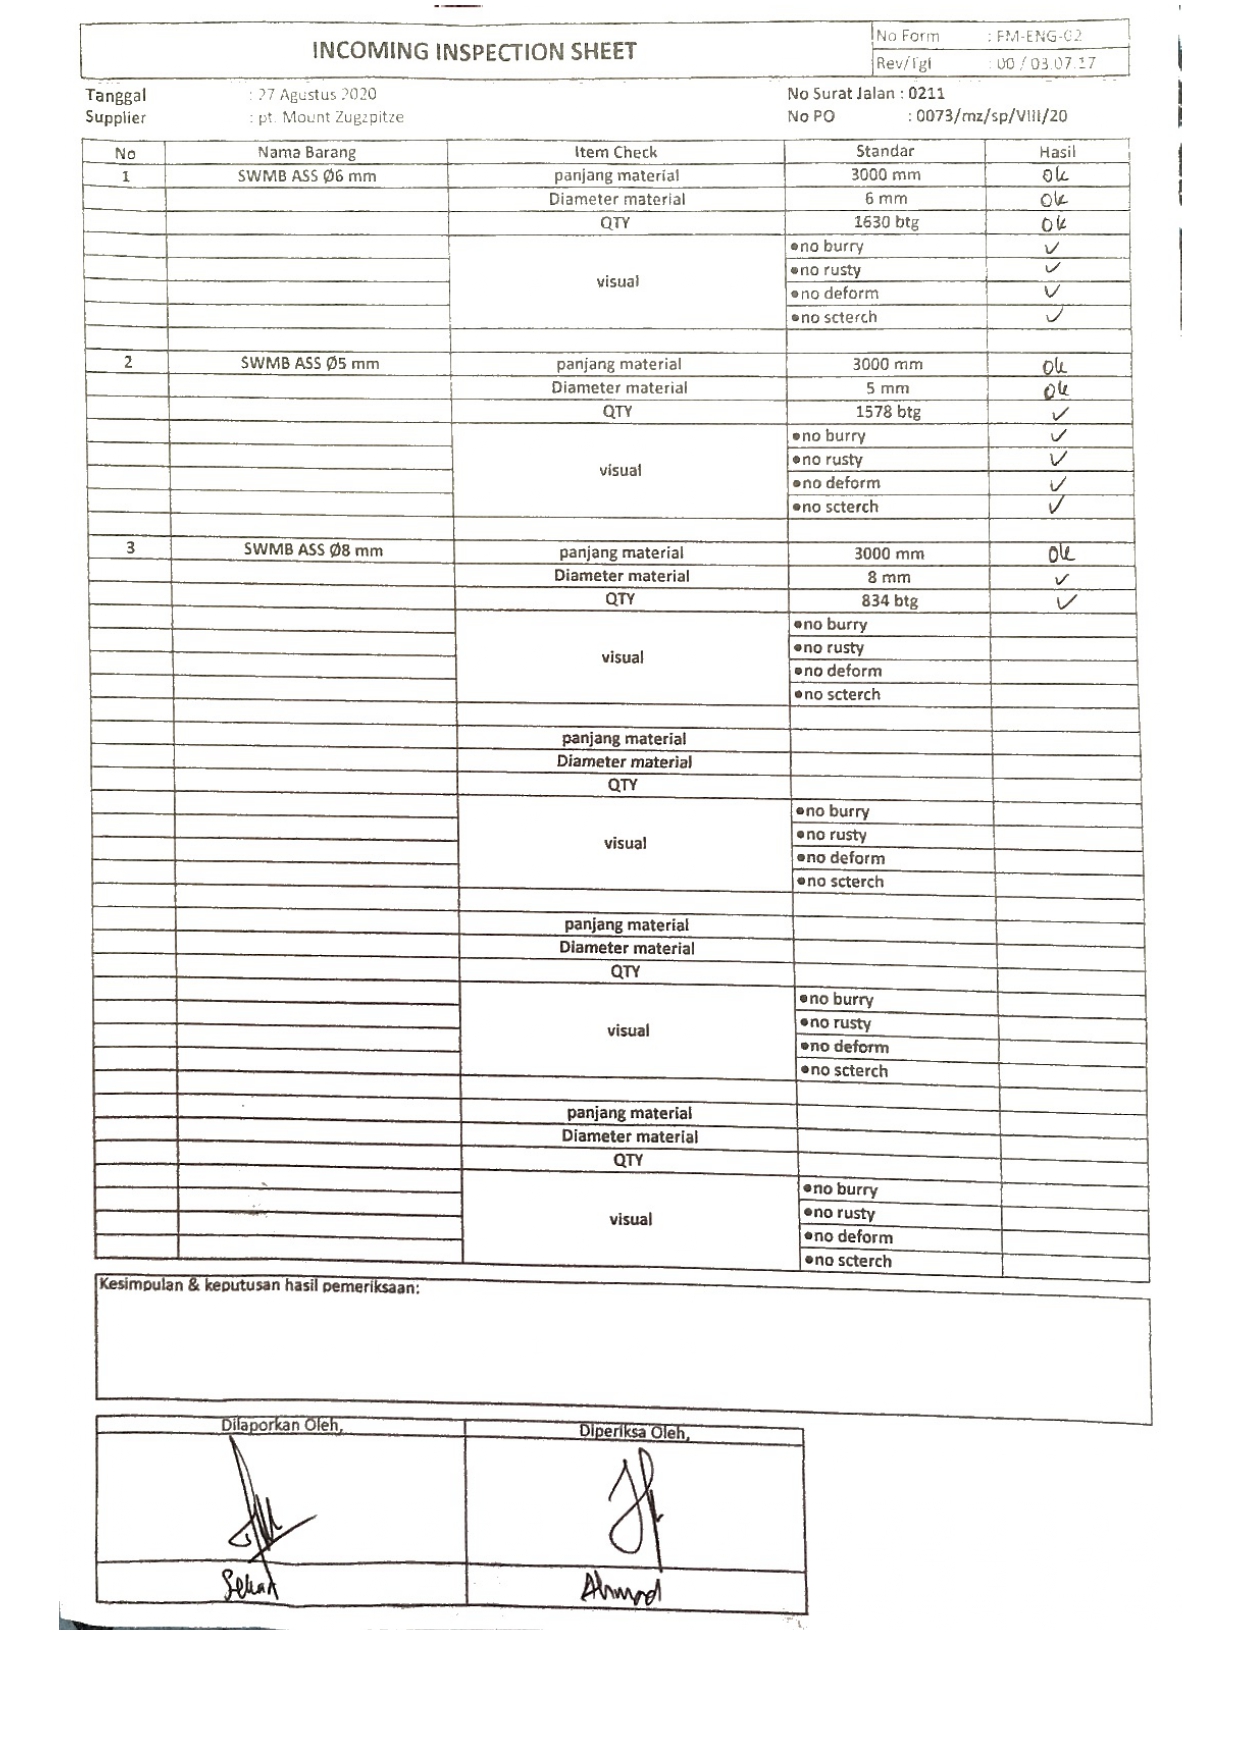 INCOMING INSPECTION SHEET
No Form : FM-ENG-02
Rev/Tgl : 00 / 03.07.17
Tanggal : 27 Agustus 2020
No Surat Jalan : 0211
Supplier : pt. Mount Zugspitze
No PO : 0073/mz/sp/VIII/20
No Nama Barang Item Check Standar Hasil
1 SWMB ASS Ø6 mm panjang material 3000 mm ok
Diameter material 6 mm ok
QTY 1630 btg ok
•no burry ✓
•no rusty ✓
visual
•no deform ✓
•no scterch ✓
2 SWMB ASS Ø5 mm panjang material 3000 mm ok
Diameter material 5 mm ok
QTY 1578 btg ✓
•no burry ✓
•no rusty ✓
visual
•no deform ✓
•no scterch ✓
3 SWMB ASS Ø8 mm panjang material 3000 mm ok
Diameter material 8 mm ✓
QTY 834 btg ✓
•no burry
•no rusty
visual
•no deform
•no scterch
panjang material
Diameter material
QTY
•no burry
•no rusty
visual
•no deform
•no scterch
panjang material
Diameter material
QTY
•no burry
•no rusty
visual
•no deform
•no scterch
panjang material
Diameter material
QTY
•no burry
•no rusty
visual
•no deform
•no scterch
Kesimpulan & keputusan hasil pemeriksaan:
Dilaporkan Oleh, Diperiksa Oleh,
Sekar Ahmad